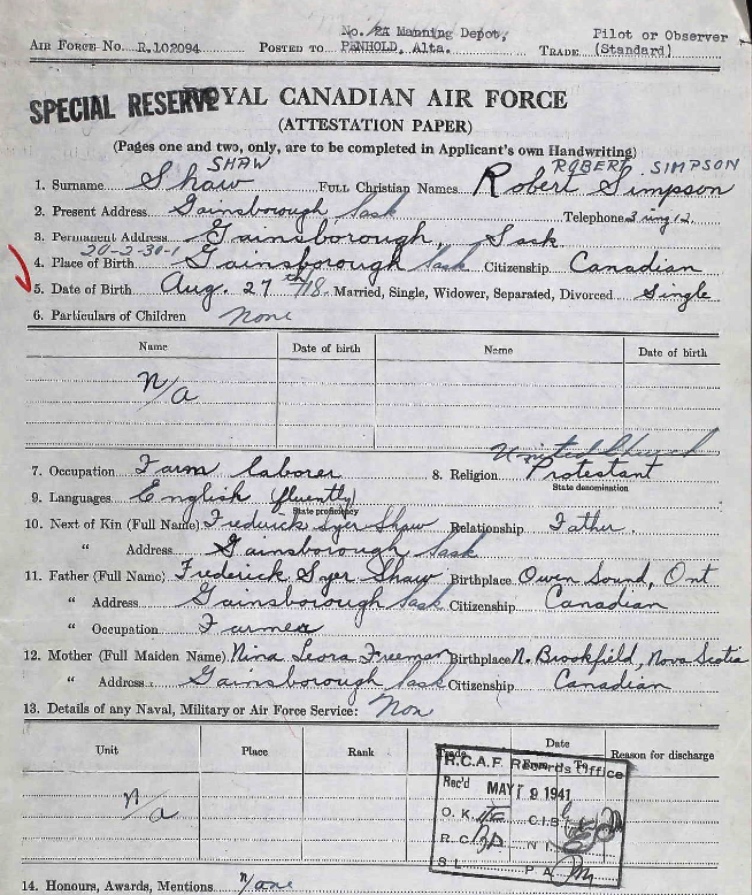 No. 2A Manning Depot, Pilot or Observer
AIR FORCE No. R.102094 POSTED TO PENHOLD, Alta. TRADE (Standard)
SPECIAL RESERVE ROYAL CANADIAN AIR FORCE
(ATTESTATION PAPER)
(Pages one and two, only, are to be completed in Applicant's own Handwriting)
SHAW ROBERT SIMPSON
1. Surname Shaw FULL Christian Names Robert Simpson
2. Present Address Gainsborough Sask Telephone 3 ring 12.
3. Permanent Address Gainsborough, Sask
20-2-30-1
4. Place of Birth Gainsborough Sask Citizenship Canadian
5. Date of Birth Aug. 27th/18. Married, Single, Widower, Separated, Divorced Single
6. Particulars of Children None
Name Date of birth Name Date of birth
N/a
United Church
7. Occupation Farm laborer 8. Religion Protestant
State denomination
9. Languages English (fluently)
State proficiency
10. Next of Kin (Full Name) Frederick Syer Shaw Relationship Father.
" Address Gainsborough Sask
11. Father (Full Name) Frederick Syer Shaw Birthplace Owen Sound, Ont
" Address Gainsborough Sask Citizenship Canadian
" Occupation Farmer
12. Mother (Full Maiden Name) Nina Leora Freeman Birthplace N. Brookfield, Nova Scotia
" Address Gainsborough Sask Citizenship Canadian
13. Details of any Naval, Military or Air Force Service: Non
Unit Place Rank Trade Date Reason for discharge
From To
R.C.A.F. Records Office
Rec'd MAY 19 1941
n/a
O.K. C.I.B.
R.C. N.I.
S.L. P.A.
14. Honours, Awards, Mentions n/one